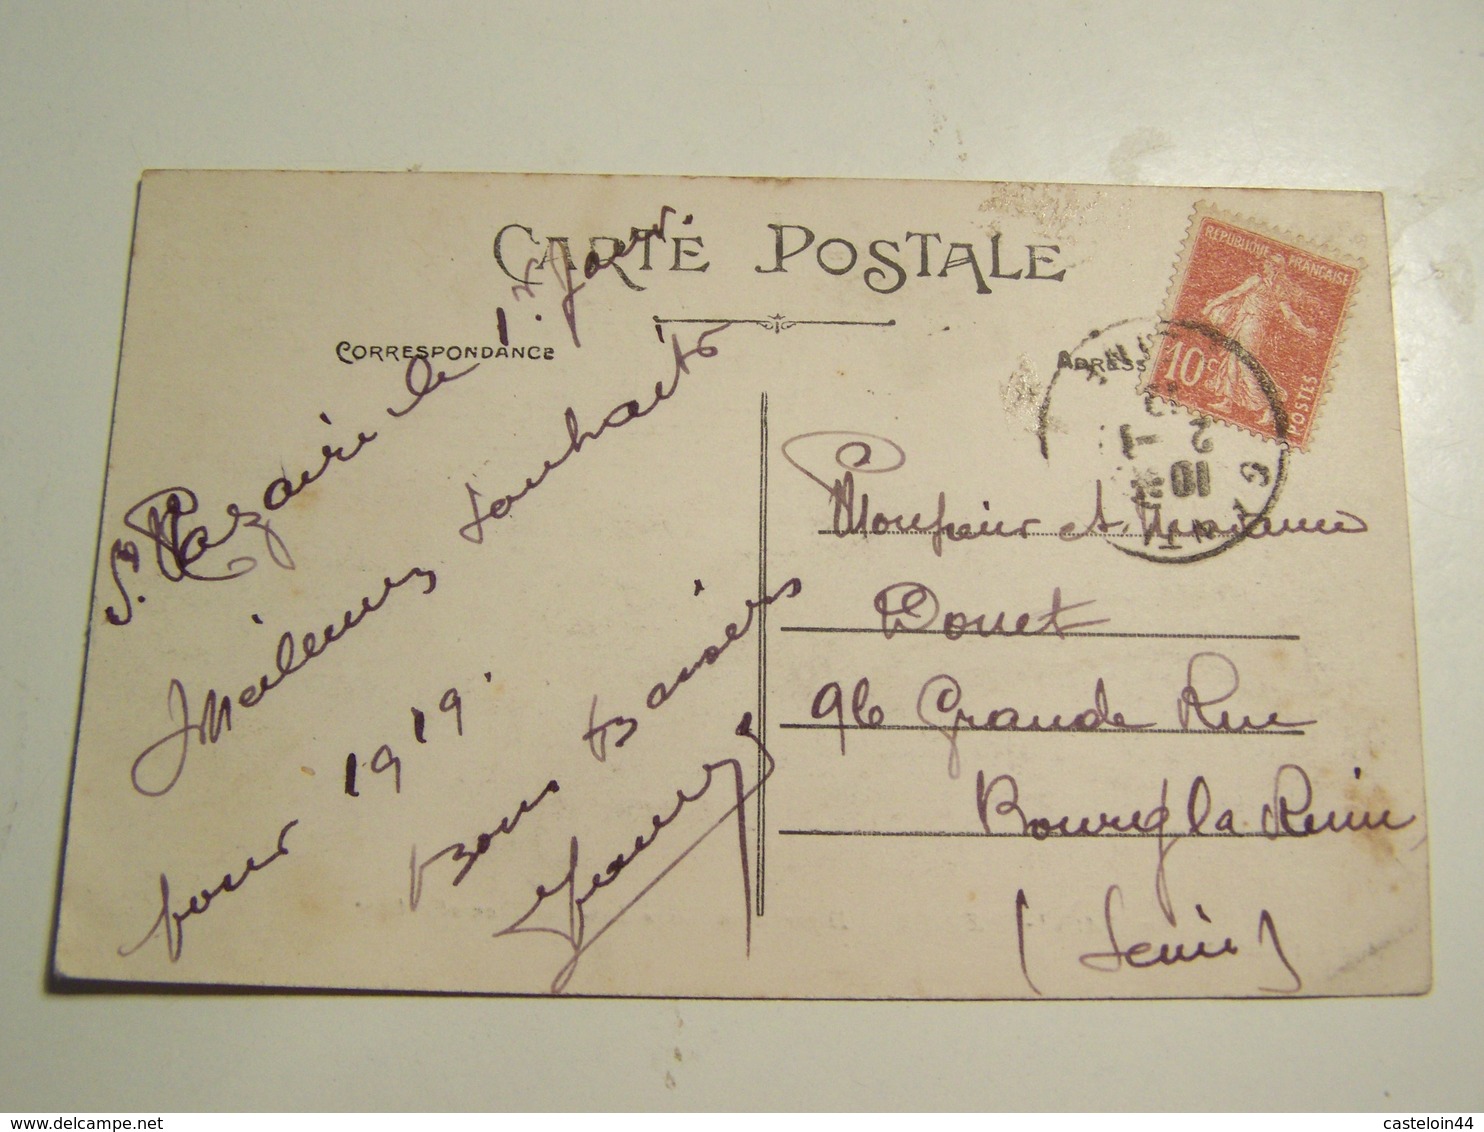 CARTE POSTALE
CORRESPONDANCE
ADRESSE
REPUBLIQUE FRANÇAISE
10c
POSTES
St Nazaire le 1er Janv.
Meilleurs souhaits
pour 1919.
Bons Baisers
Monsieur et Madame
Douet
96 Grande Rue
Bourg la Reine
(Seine)
www.delcampe.net
casteloin44